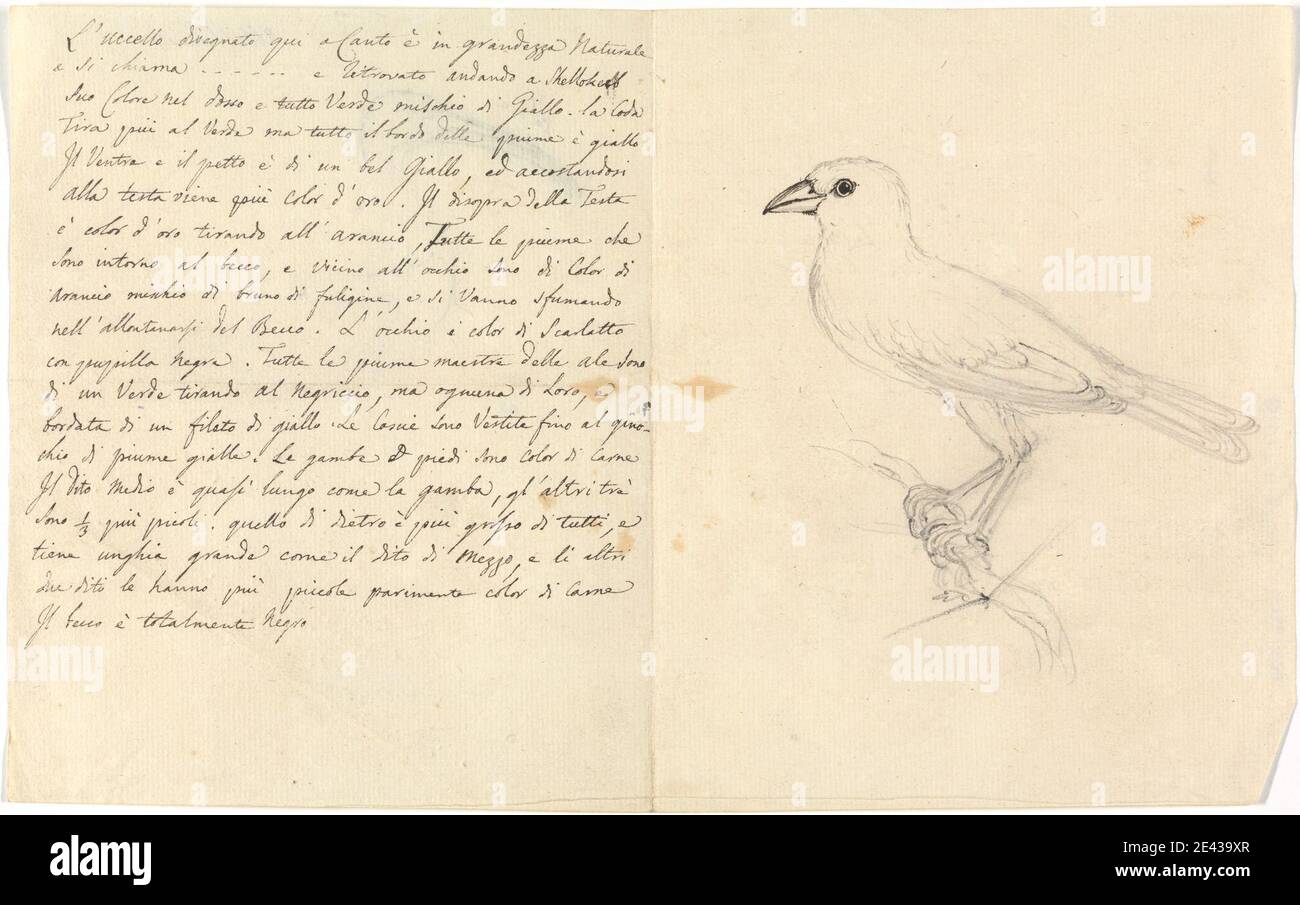 L'uccello disegnato qui a Canto è in grandezza Naturale
e si chiama - - - - - - e ritrovato andando a
Suo Colore nel dosso e tutto Verde mischio di Giallo. la Coda
Tira più al Verde ma tutto il bordo delle piume è giallo
Il Ventre e il petto è di un bel Giallo, ed accostandosi
alla testa viene più color d'oro. Il disopra della Testa
è color d'oro tirando all'arancio, Tutte le piume che
sono intorno al becco, e vicino all'occhio sono di Color di
arancio mischio di bruno di fuligine, e si Vanno sfumando
nell'allontanarsi del Becco. L'occhio è color di Scarlatto
con pupilla negra. Tutte le piume maestre delle ale sono
di un Verde tirando al Negriccio, ma ogniuna di Loro, e
bordata di un filato di giallo. Le Coscie sono Vestite fino al gino-
chio di piume gialle. Le gambe e piedi sono color di Carne
Il Dito Medio è quasi lungo come la gamba, gl'altri trè
sono 1/3 più picoli. quello di dietro è più grosso di tutti, e
tiene unghia grande come il dito di Mezzo, e li altri
due dito le hanno più piccole parimente color di Carne
Il becco è totalmente Negro
alamy
alamy
alamy
alamy
alamy
alamy
Image ID: 2E439XR
www.alamy.com